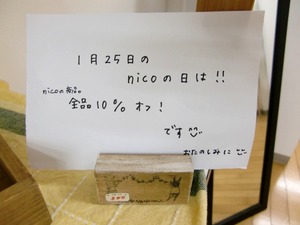 1月25日の
nicoの日は!!
nicoの商品。
全品10% オフ!
です
おたのしみに